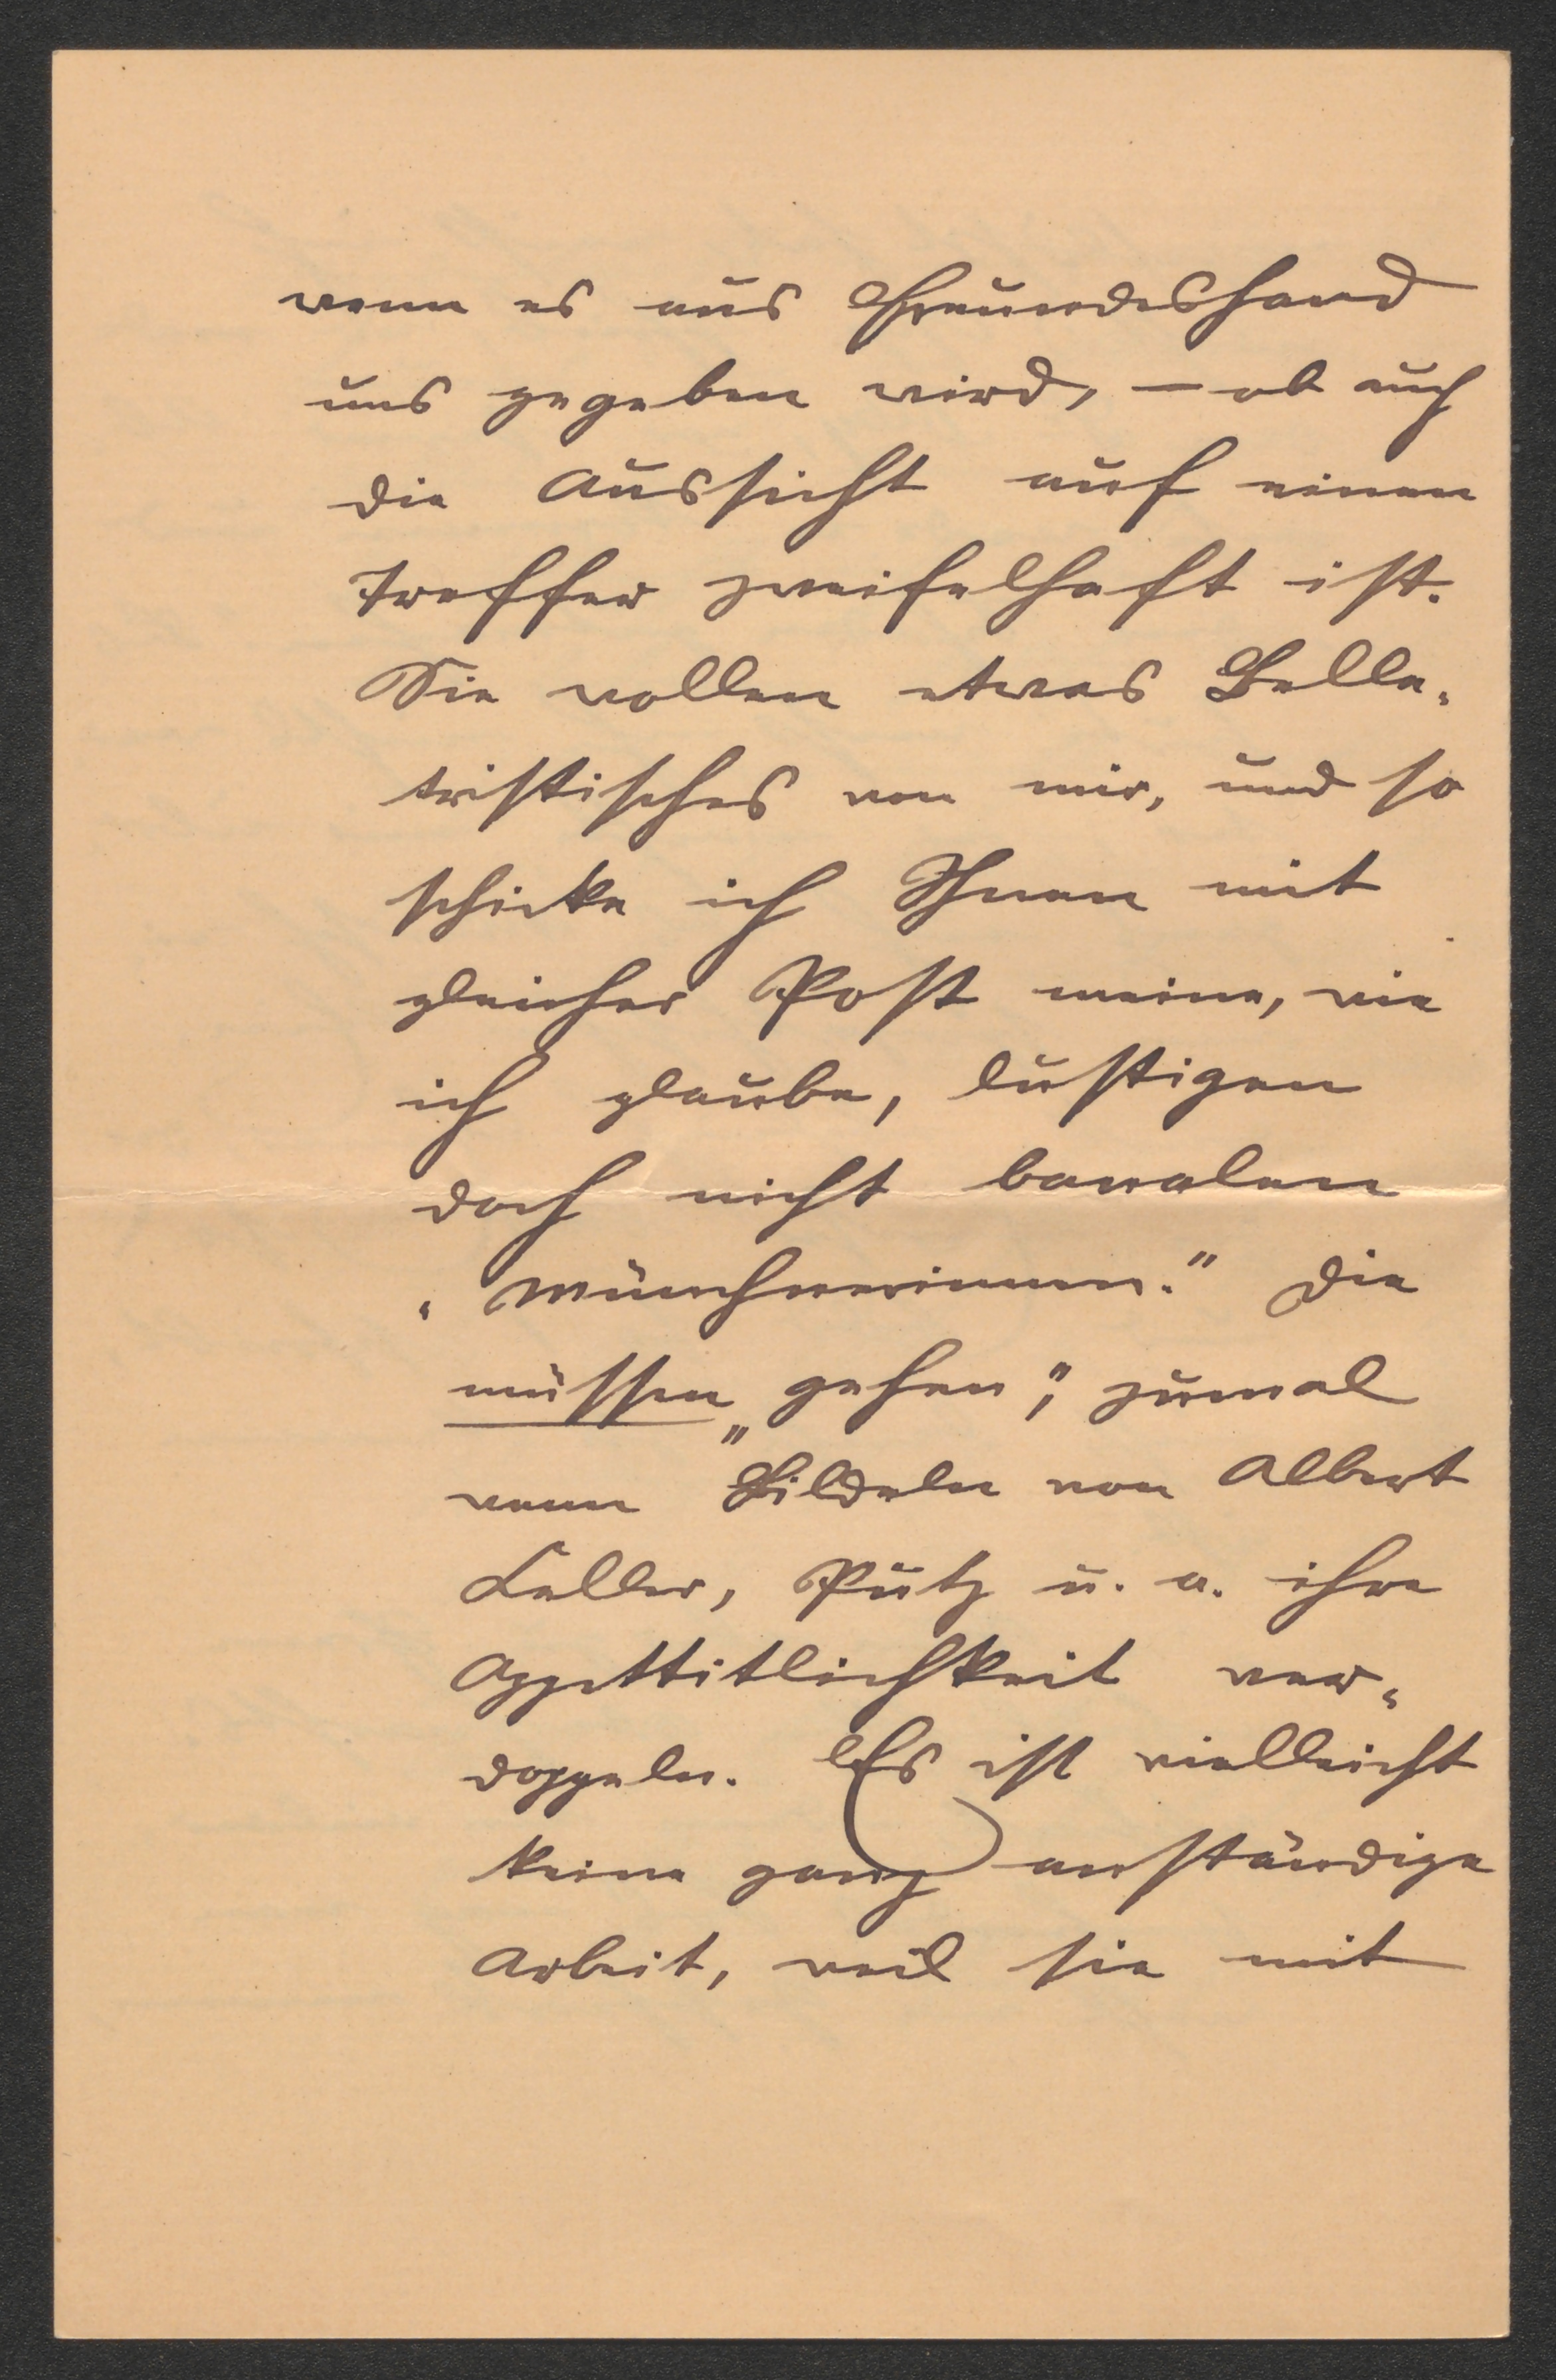 wenn es aus Freundeshand
uns gegeben wird, — ob auch
die Aussicht auf einen
Treffer zweifelhaft ist.
Sie wollen etwas Belle-
tristisches von mir, und so
schicke ich Ihnen mit
gleicher Post meine, wie
ich glaube, lustigen
doch nicht banalen
„Münchnerinnen." Die
müssen „gehen", zumal
wenn Bildeln von Albert
Keller, Putz u. a. ihre
Appettitlichkeit ver-
doppeln. Es ist vielleicht
keine ganz anständige
Arbeit, weil sie mit